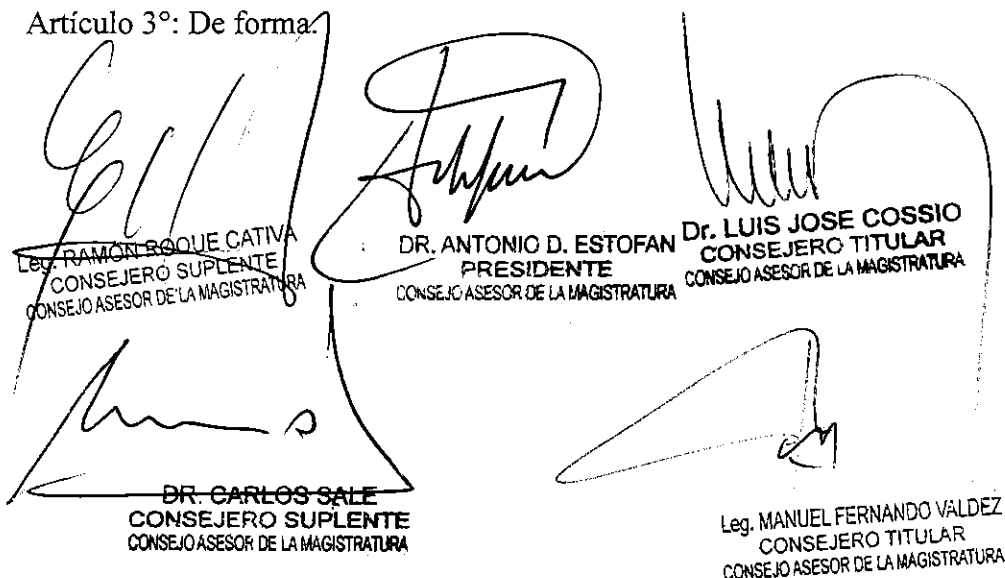 Artículo 3°: De forma.
Leg. RAMÓN ROQUE CATIVA
CONSEJERO SUPLENTE
CONSEJO ASESOR DE LA MAGISTRATURA
DR. ANTONIO D. ESTOFAN
PRESIDENTE
CONSEJO ASESOR DE LA MAGISTRATURA
Dr. LUIS JOSE COSSIO
CONSEJERO TITULAR
CONSEJO ASESOR DE LA MAGISTRATURA
DR. CARLOS SALE
CONSEJERO SUPLENTE
CONSEJO ASESOR DE LA MAGISTRATURA
Leg. MANUEL FERNANDO VALDEZ
CONSEJERO TITULAR
CONSEJO ASESOR DE LA MAGISTRATURA